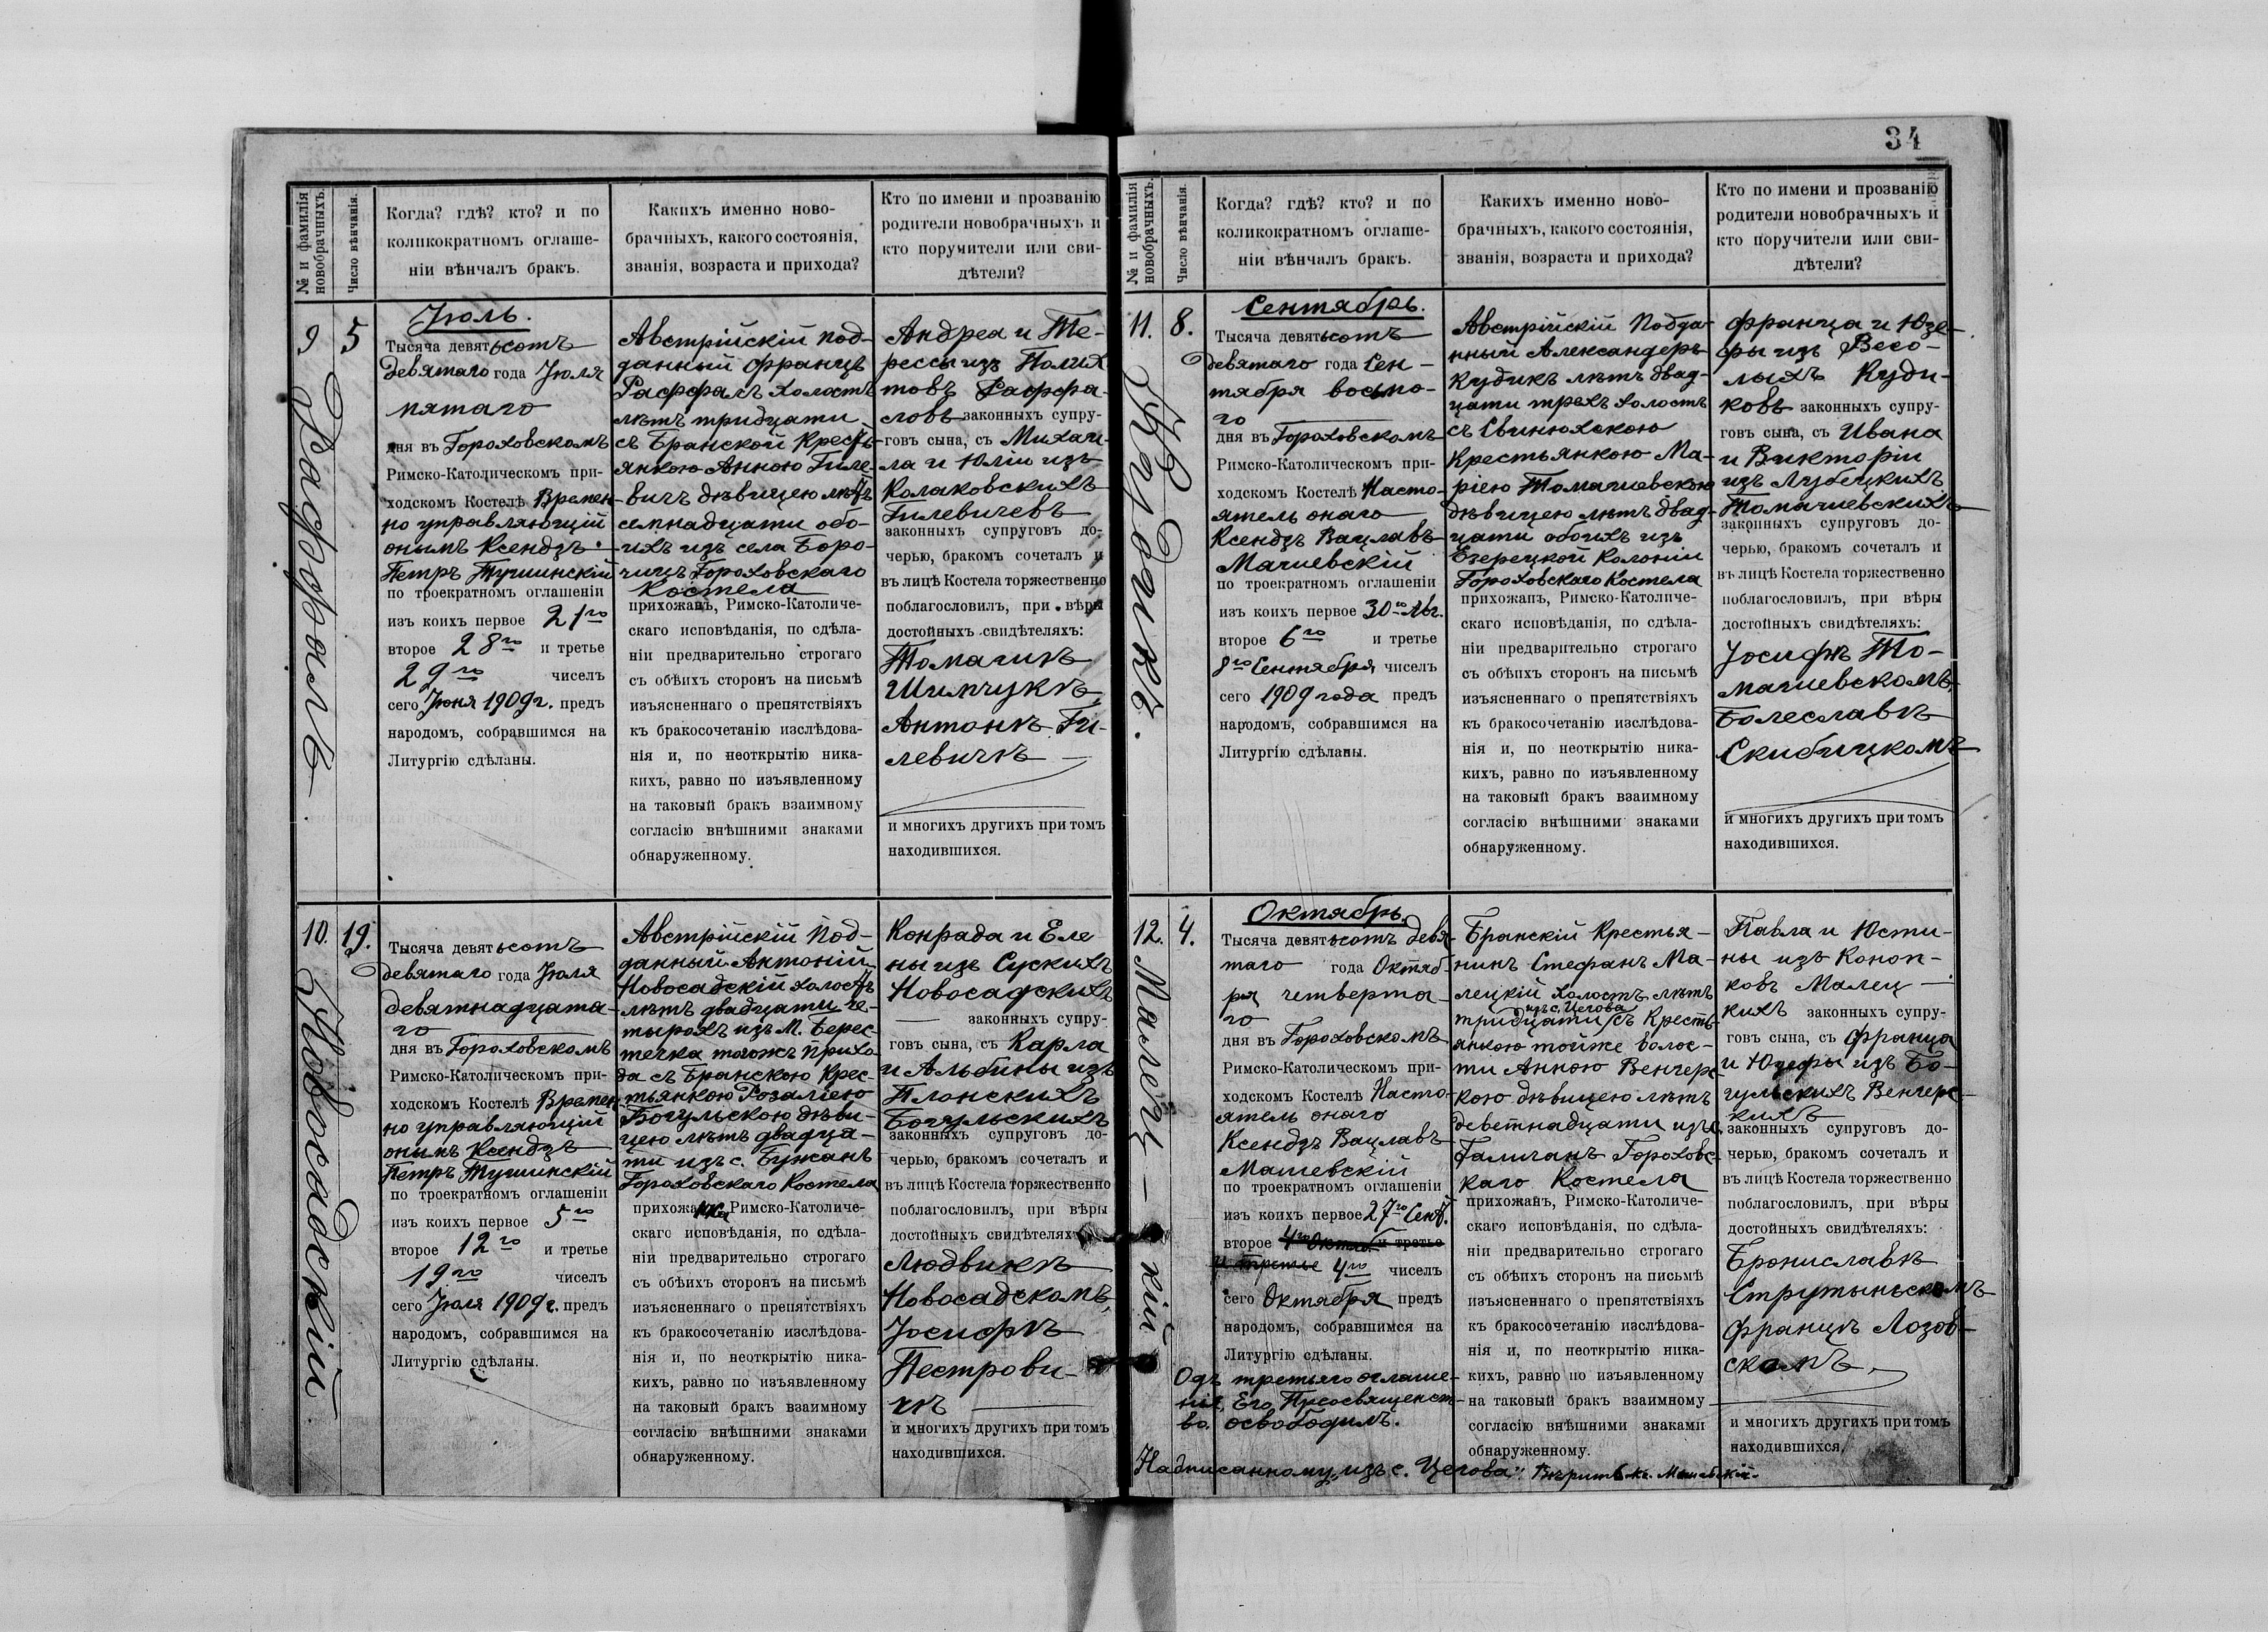 34
№ и фамилія новобрачныхъ.
Число вѣнчанія.
Когда? гдѣ? кто? и по
коликократномъ оглаше-
ніи вѣнчалъ бракъ.
Какихъ именно ново-
брачныхъ, какого состоянія,
званія, возраста и прихода?
Кто по имени и прозванію
родители новобрачныхъ и
кто поручители или сви-
дѣтели?
9
Раффалъ
5
Іюль.
Тысяча девятьсотъ
девятаго года Іюля
пятаго
дня въ Гороховскомъ
Римско-Католическомъ при-
ходскомъ Костелѣ Времен
но управляющій
онымъ Ксендзъ
Петръ Тушинскій
по троекратномъ оглашеніи
изъ коихъ первое 21го
второе 28го и третье
29го чиселъ
сего Іюня 1909 г. предъ
народомъ, собравшимся на
Литургію сдѣланы.
Австрійскій под-
данный Францъ
Раффалъ холостъ
лѣтъ тридцати
съ Бранской Кресть-
янкою Анною Гиле-
вичъ дѣвицею лѣтъ
семнадцати обо-
ихъ изъ села Боро-
чицъ Гороховскаго
Костела
прихожанъ, Римско-Католиче-
скаго исповѣданія, по сдѣла-
ніи предварительно строгаго
съ обѣихъ сторонъ на письмѣ
изъясненнаго о препятствіяхъ
къ бракосочетанію изслѣдова-
нія и, по неоткрытію ника-
кихъ, равно по изъявленному
на таковый бракъ взаимному
согласію внѣшними знаками
обнаруженному.
Андрея и Те-
рессы изъ
товъ Раффа-
ловъ законныхъ супру-
говъ сына, съ Михаи-
ла и Юліи изъ
Колаковскихъ
Гилевичевъ
законныхъ супруговъ до-
черью, бракомъ сочеталъ и
въ лицѣ Костела торжественно
поблагословилъ, при вѣры
достойныхъ свидѣтеляхъ:
Томашкѣ
Шимчукѣ,
Антонѣ Ги-
левичѣ
и многихъ другихъ при томъ
находившихся.
10.
Новосадскій
19.
Тысяча девятьсотъ
девятаго года Іюля
девятнадцата-
го
дня въ Гороховскомъ
Римско-Католическомъ при-
ходскомъ Костелѣ Времен
но управляющій
онымъ Ксендзъ
Петръ Тушинскій
по троекратномъ оглашеніи
изъ коихъ первое 5го
второе 12го и третье
19го чиселъ
сего Іюля 1909 г. предъ
народомъ, собравшимся на
Литургію сдѣланы.
Австрійскій Под-
данный Антоній
Новосадскій холостъ
лѣтъ двадцати че-
тырохъ изъ М. Берес-
течка тогожъ прихо-
да съ Бранскою Крес-
тьянкою Розаліею
Богульскою дѣви-
цею лѣтъ двадца-
ти изъ с. Бужанъ
Гороховскаго Костела
прихожанка, Римско-Католиче-
скаго исповѣданія, по сдѣла-
ніи предварительно строгаго
съ обѣихъ сторонъ на письмѣ
изъясненнаго о препятствіяхъ
къ бракосочетанію изслѣдова-
нія и, по неоткрытію ника-
кихъ, равно по изъявленному
на таковый бракъ взаимному
согласію внѣшними знаками
обнаруженному.
Конрада и Еле
ны изъ Сускихъ
Новосадскихъ
законныхъ супру-
говъ сына, съ Карла
и Альбины изъ
Плонскихъ
Богульскихъ
законныхъ супруговъ до-
черью, бракомъ сочеталъ и
въ лицѣ Костела торжественно
поблагословилъ, при вѣры
достойныхъ свидѣтеляхъ
Людвикѣ
Новосадскомъ,
Іосифѣ
Пестрови-
чѣ
и многихъ другихъ при томъ
находившихся.
№ и фамилія новобрачныхъ.
Число вѣнчанія.
Когда? гдѣ? кто? и по
коликократномъ оглаше-
ніи вѣнчалъ бракъ.
Какихъ именно ново-
брачныхъ, какого состоянія,
званія, возраста и прихода?
Кто по имени и прозванію
родители новобрачныхъ и
кто поручители или сви-
дѣтели?
11.
Кудикъ.
8.
Сентябрь.
Тысяча девятьсотъ
девятаго года Сен-
тября восьмо-
го
дня въ Гороховскомъ
Римско-Католическомъ при-
ходскомъ Костелѣ Насто-
ятель онаго
Ксендзъ Вацлавъ
Мачиевскій
по троекратномъ оглашеніи
изъ коихъ первое 30го Авг.
второе 6го и третье
8го Сентября чиселъ
сего 1909 года предъ
народомъ, собравшимся на
Литургію сдѣланы.
Австрійскій Подда-
нный Александеръ
Кудикъ лѣтъ двад-
цати трехъ холостъ
съ Свинюхскою
Крестьянкою Ма-
ріею Томашевскою
дѣвицею лѣтъ двад-
цати обоихъ изъ
Езерецкой Колоніи
Гороховскаго Костела
прихожанъ, Римско-Католиче-
скаго исповѣданія, по сдѣла-
ніи предварительно строгаго
съ обѣихъ сторонъ на письмѣ
изъясненнаго о препятствіяхъ
къ бракосочетанію изслѣдова-
нія и, по неоткрытію ника-
кихъ, равно по изъявленному
на таковый бракъ взаимному
согласію внѣшними знаками
обнаруженному.
Франца и Юзе-
фы изъ Весо-
лыхъ Куди-
ковъ законныхъ супру-
говъ сына, съ Ивана
и Викторіи
изъ Лубецкихъ
Томашевскихъ
законныхъ супруговъ до-
черью, бракомъ сочеталъ и
въ лицѣ Костела торжественно
поблагословилъ, при вѣры
достойныхъ свидѣтеляхъ:
Іосифѣ То-
машевскомъ,
Болеславѣ
Скибицкомъ
и многихъ другихъ при томъ
находившихся.
12.
Малец-кій
4.
Октябрь.
Тысяча девятьсотъ девя-
таго года Октяб-
ря четверта-
го
дня въ Гороховскомъ
Римско-Католическомъ при-
ходскомъ Костелѣ Насто-
ятель онаго
Ксендзъ Вацлавъ
Мачиевскій
по троекратномъ оглашеніи
изъ коихъ первое 27го Сент.
второе 4го Октяб. и третье
и третье 4го чиселъ
сего Октября предъ
народомъ, собравшимся на
Литургію сдѣланы.
Одъ третьяго оглаше-
нія, Его Преосвященст-
во, освободилъ.
Бранскій Крестья-
нинъ Стефанъ Ма-
лецкій холостъ лѣтъ
изъ с. Цегова
тридцати съ Кресть-
янкою тойже волос-
ти Анною Венгерс-
кою дѣвицею лѣтъ
деветнадцати изъ с.
Галичанъ Гороховс-
каго Костела
прихожанъ, Римско-Католиче-
скаго исповѣданія, по сдѣла-
ніи предварительно строгаго
съ обѣихъ сторонъ на письмѣ
изъясненнаго о препятствіяхъ
къ бракосочетанію изслѣдова-
нія и, по неоткрытію ника-
кихъ, равно по изъявленному
на таковый бракъ взаимному
согласію внѣшними знаками
обнаруженному.
Павла и Юсти-
ны изъ Коноп-
ковъ Малец-
кихъ законныхъ супру-
говъ сына, съ Франца
и Юзефы изъ Бо-
гульскихъ Венгерс-
кихъ
законныхъ супруговъ до-
черью, бракомъ сочеталъ и
въ лицѣ Костела торжественно
поблагословилъ, при вѣры
достойныхъ свидѣтеляхъ:
Брониславѣ
Струтыньскомъ
Францѣ Лозов-
скомъ,
и многихъ другихъ при томъ
находившихся.
Надписанному „изъ с. Цегова“ вѣрить кс. Мачиевскій.